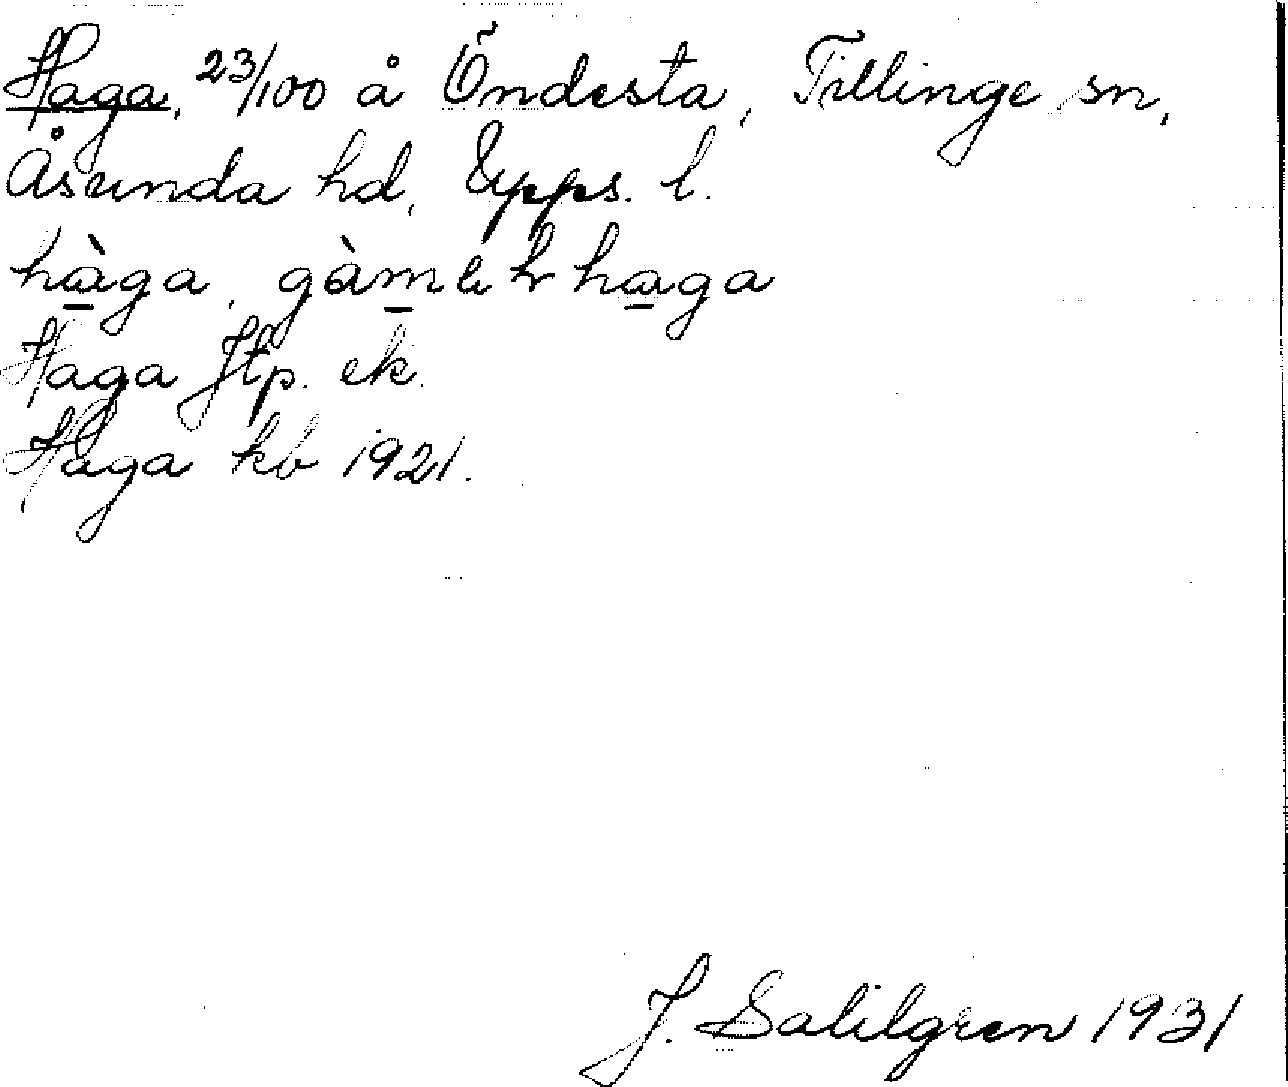 Haga, 23/100 å Öndesta, Tillinge sn,
Åsunda hd, Upps. l.
hàga, gàmlhhaga
Haga Jtp. ek.
Haga kb 1921.
J. Sahlgren 1931